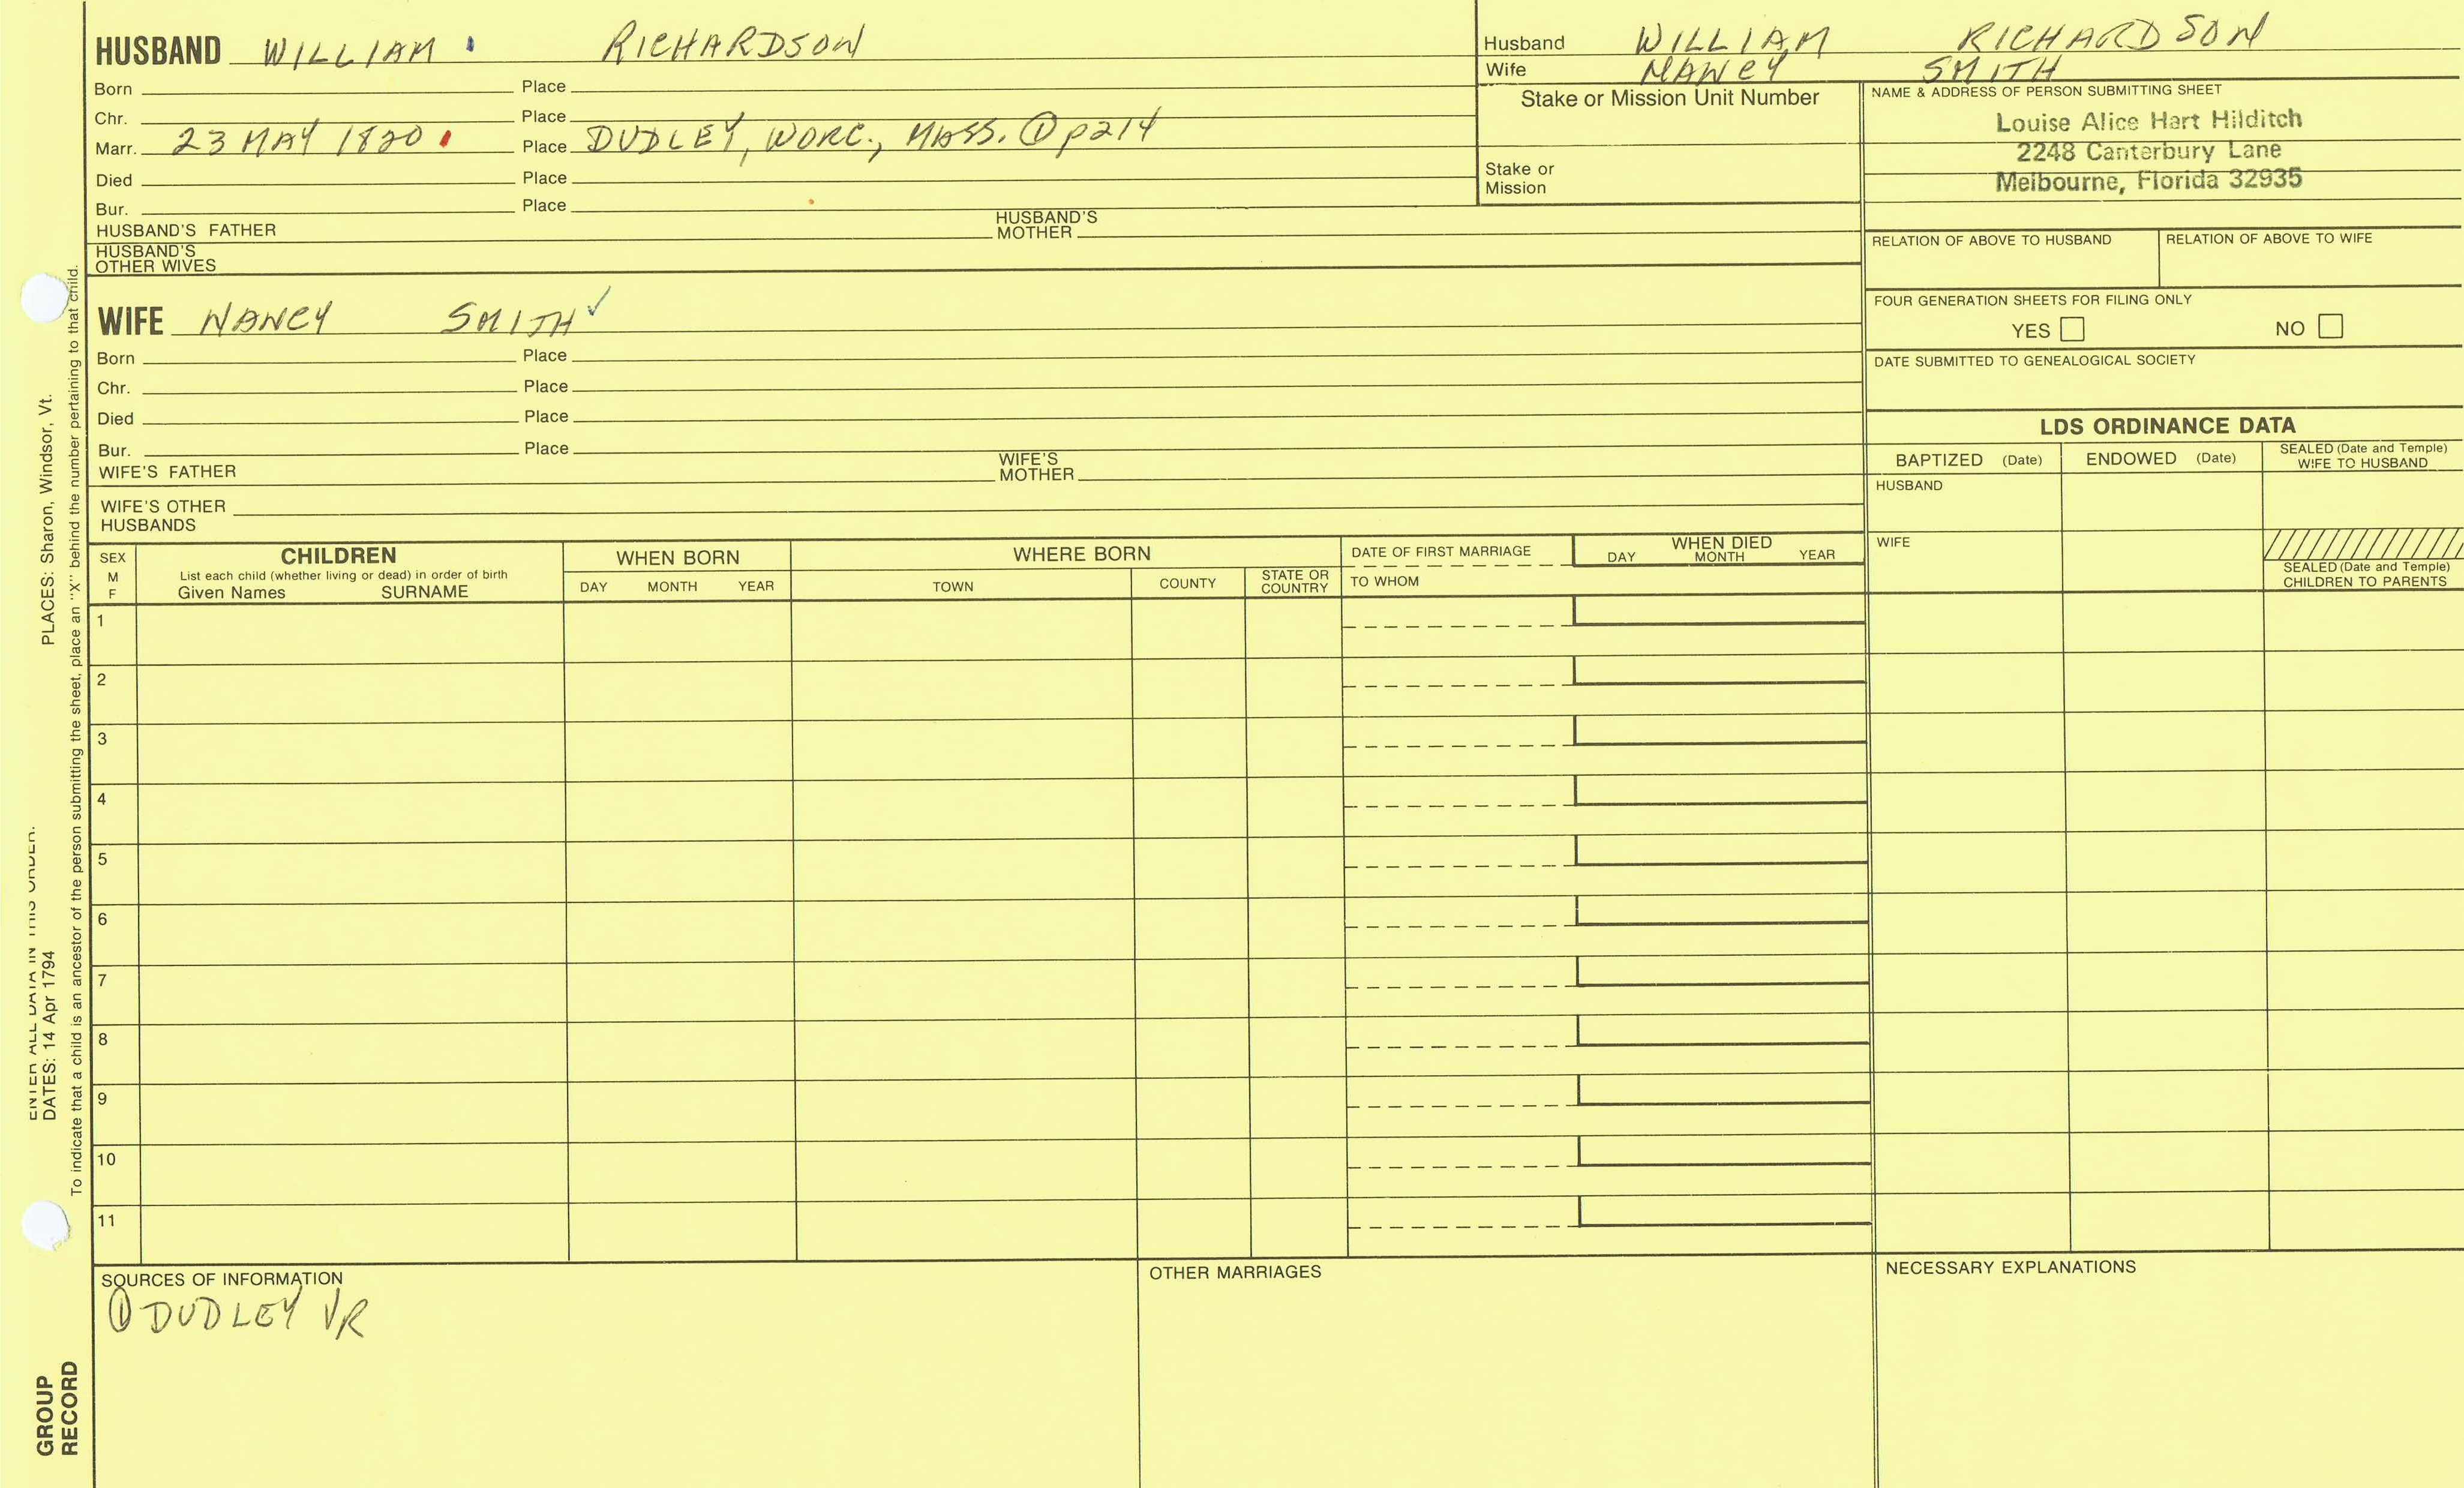 HUSBAND WILLIAM RICHARDSON
Born Place
Chr. Place
Marr. 23 MAY 1820 Place DUDLEY, WORC., MASS. ① p214
Died Place
Bur. Place
HUSBAND'S FATHER HUSBAND'S MOTHER
HUSBAND'S OTHER WIVES
Husband WILLIAM RICHARDSON
Wife NANCY SMITH
Stake or Mission Unit Number
Stake or Mission
NAME & ADDRESS OF PERSON SUBMITTING SHEET
Louise Alice Hart Hilditch
2248 Canterbury Lane
Melbourne, Florida 32935
RELATION OF ABOVE TO HUSBAND RELATION OF ABOVE TO WIFE
FOUR GENERATION SHEETS FOR FILING ONLY
YES NO
DATE SUBMITTED TO GENEALOGICAL SOCIETY
WIFE NANCY SMITH ✓
Born Place
Chr. Place
Died Place
Bur. Place
WIFE'S FATHER WIFE'S MOTHER
WIFE'S OTHER HUSBANDS
LDS ORDINANCE DATA
BAPTIZED (Date) ENDOWED (Date) SEALED (Date and Temple) WIFE TO HUSBAND
HUSBAND
WIFE
SEALED (Date and Temple) CHILDREN TO PARENTS
SEX M F
CHILDREN
List each child (whether living or dead) in order of birth
Given Names SURNAME
WHEN BORN
DAY MONTH YEAR
WHERE BORN
TOWN COUNTY STATE OR COUNTRY
DATE OF FIRST MARRIAGE
TO WHOM
WHEN DIED
DAY MONTH YEAR
1
2
3
4
5
6
7
8
9
10
11
SOURCES OF INFORMATION
① DUDLEY VR
OTHER MARRIAGES
NECESSARY EXPLANATIONS
ENTER ALL DATA IN THIS ORDER:
DATES: 14 Apr 1794 PLACES: Sharon, Windsor, Vt.
To indicate that a child is an ancestor of the person submitting the sheet, place an "X" behind the number pertaining to that child.
GROUP
RECORD